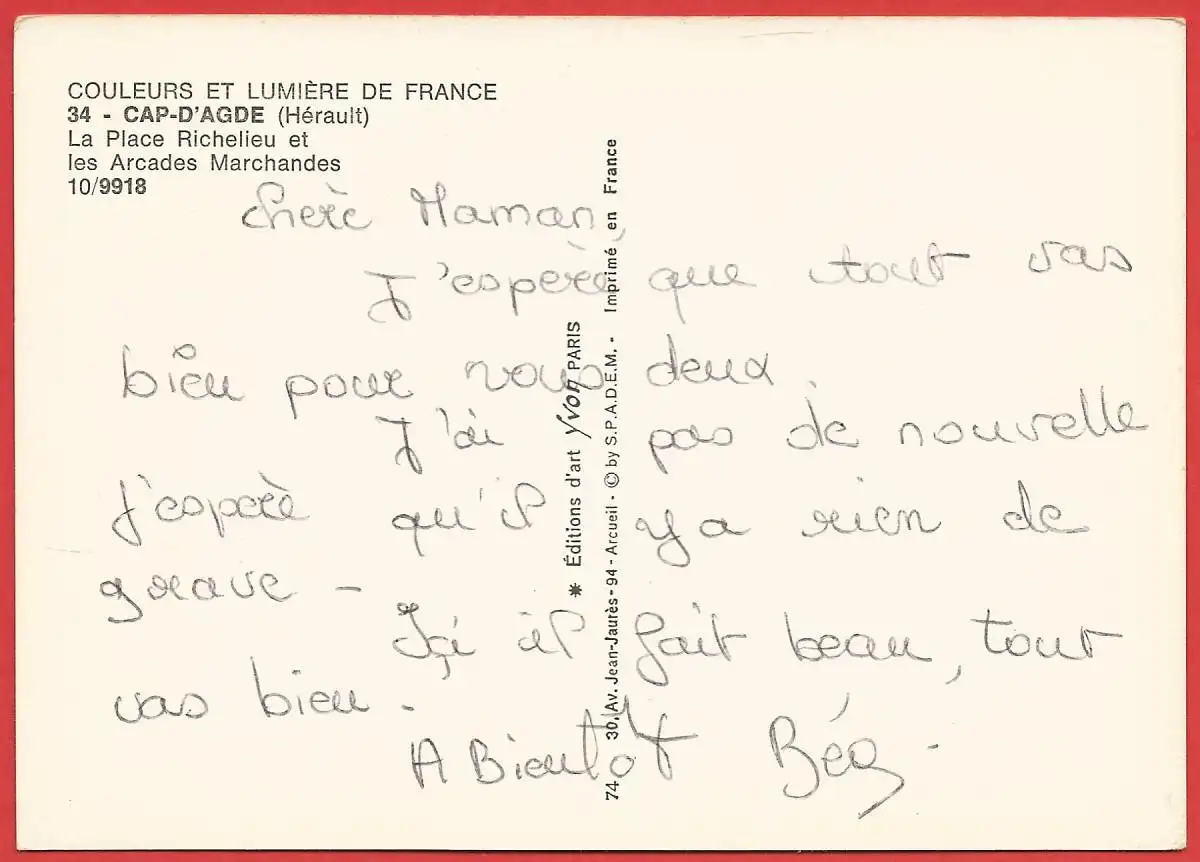 COULEURS ET LUMIÈRE DE FRANCE
34 - CAP-D'AGDE (Hérault)
La Place Richelieu et
les Arcades Marchandes
10/9918
Cherè Maman,
J'esperè que tout vas
bien pour vous deux.
J'ai pas de nouvelle
J'esperè qu'il y a rien de
grave -
Içi il fait beau, tout
vas bien -
A Bientôt
✷ Éditions d'art Yvon PARIS
74 30, Av. Jean-Jaurès - 94 - Arcueil - © by S.P.A.D.E.M. - Imprimé en France